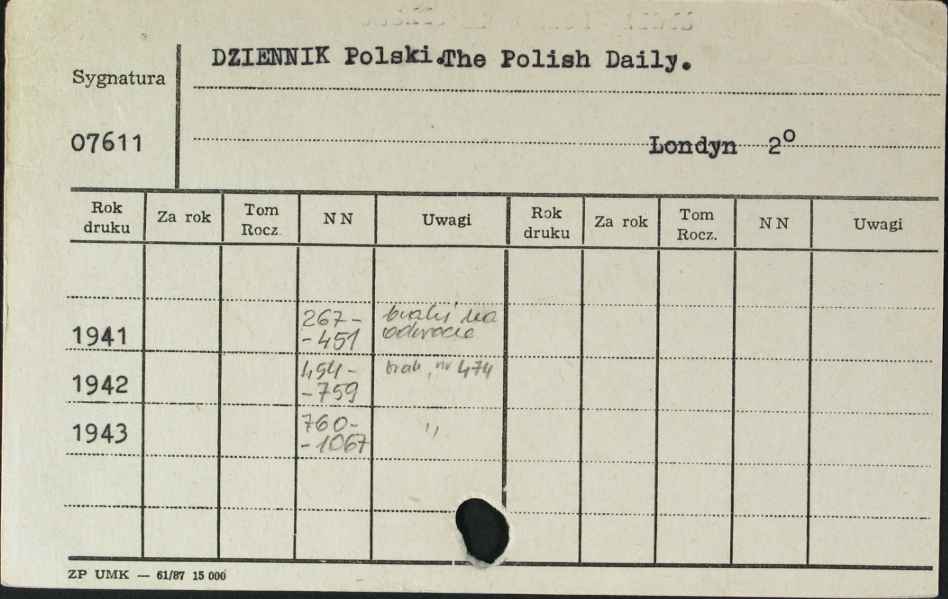 DZIENNIK Polski.The Polish Daily.
Sygnatura
07611
Londyn 2°
Rok druku Za rok Tom Rocz. NN Uwagi Rok druku Za rok Tom Rocz. NN Uwagi
267- braki na
1941 -451 odwrocie
454- brak, nr 474
1942 -759
760- "
1943 -1067
ZP UMK — 61/87 15 000